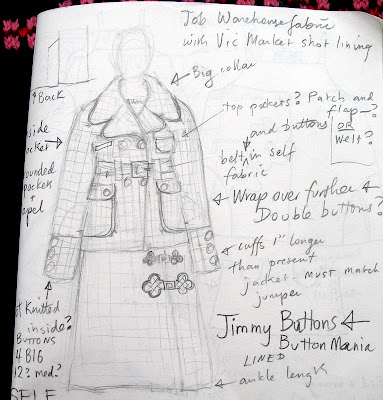 Job Warehouse fabric
with Vic Market shot lining
Big collar
↑ Back
top pockets? Patch and
flap—?
and buttons
OR
welt?
belt in self
fabric
Wrap over further
Double buttons?
cuffs 1" longer
than present
jacket - must match
jumper
Knitted
inside?
BUTTONS
4 BIG
12? med?
Jimmy Buttons
Button Mania
LINED
ankle length
SELF